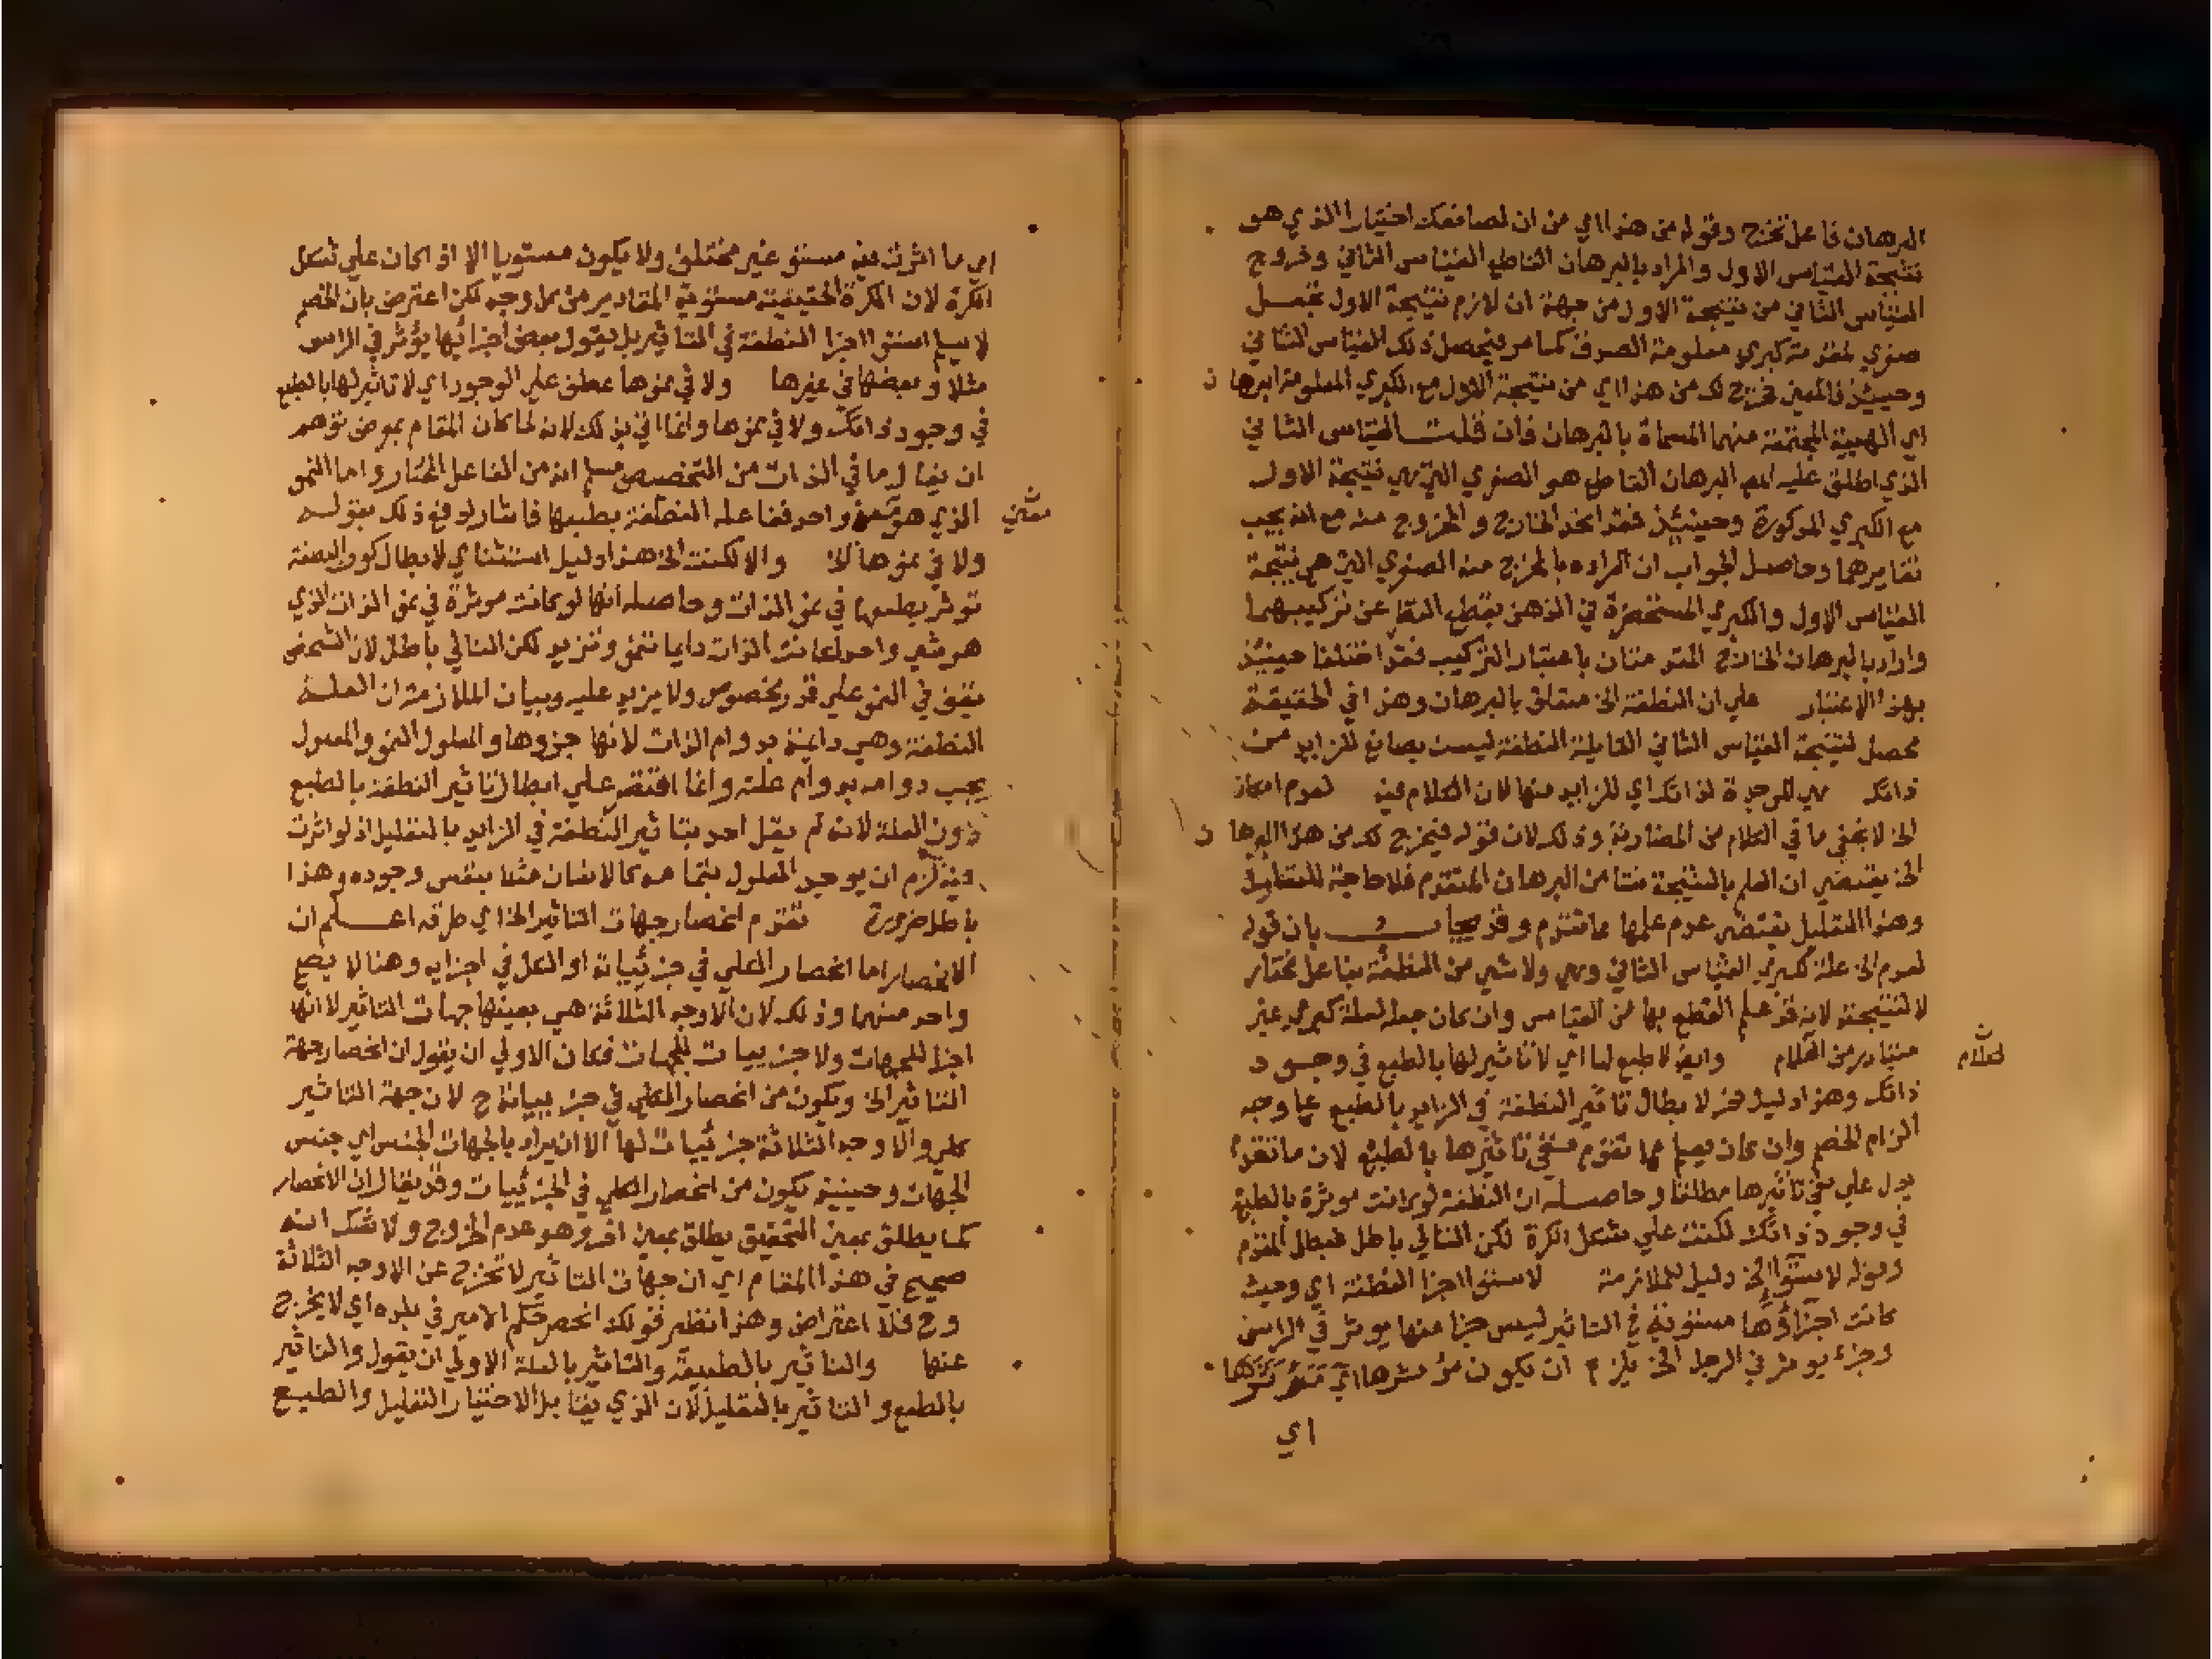 البرهان فاعل تخرج وقوله من هذا اي من ان لصانعك اختيارا الذي هو
نتيجة القياس الاول والمراد بالبرهان القاطع القياس الثاني وخروج
القياس الثاني من نتيجة الاول من جهة ان لازم نتيجة الاول تجعل
صغري لمقدمة كبري معلومة الصرف كما مر فيحصل ذلك القياس الثاني
وحينئذ فالمعني يخرج لك من هذا اي من نتيجة الاول مع الكبري المعلومة ابرهان
اي الهيية المجتمعة منهما المسماة بالبرهان فان قلت القياس الثاني
الذي اطلق عليه اسم البرهان القاطع هو الصغري التي هي نتيجة الاول
مع الكبري المذكورة وحينئذ فقد اتحد الخارج والمخروج منه مع انه يجب
تغايرهما وحاصل الجواب ان المراد بالمخرج منه الصغري التي هي نتيجة
القياس الاول والكبري المستحضرة في الذهن بقطع النظر عن تركيبهما
واراد بالبرهان الخارج المقدمتان باعتبار التركيب فقد اختلفا حينئذ
بهذا الاعتبار علي ان النطفة الخ متعلق بالبرهان وهذا في الحقيقة
محصل لنتيجة القياس الثاني القايلة النطفة ليست بصانع للزايد من
ذاتك هي الموجدة لذاتك اي للزايد منها لان الكلام فيه لعدم امكان
الخ لا يخفي ما في الكلام من المصادرة وذلك لان قوله فيخرج لك من هذا البرهان
الخ يقتضي ان العلم بالنتيجة نشا من البرهان المتقدم فلا حاجة للتعليل
وهذا التعليل يقتضي عدم علمها مما تقدم وقد يجاب بان قوله
لعدم الخ علة لكبري القياس الثاني وهي ولا شي من النطفة بفاعل مختار
لا لنتيجته لانه قد علم القطع بها من القياس وان كان جعله لعلة كبري غير
متبادر من الكلام وايضا لا طبع لها اي لا تاثير لها بالطبع في وجود
لكلام
ذاتك وهذا دليل اخر لابطال تاثير النطفة في الزايد بالطبع علي وجه
الزام الخصم وان كان يعلم مما تقدم نفي تاثيرها بالطبع لان ما تقدم
يدل علي نفي تاثيرها مطلقا وحاصله ان النطفة لو كانت موثرة بالطبع
في وجود ذاتك لكنت علي شكل الكرة لكن التالي باطل فبطل المقدم
وقوله لاستوا الخ دليل للملازمة لاستوا اجزا النطفة اي وحيث
كانت اجزاؤها مستوية في التاثير ليس جزا منها يوثر في الراس
وجزء يوثر في الرجل الخ يلزم ان يكون مؤثرها اي
اي
اي ما اثرت فيه مستو غير مختلف ولا يكون مستويا الا اذا كان علي شكل
الكرة لان الكرة الحقيقية مستوية المقادير من كل وجه لكن اعترض بان الخصم
لا يسلم استوا اجزا النطفة في التاثير بل يقول بعض اجزائها يؤثر في الراس
مثلا وبعضها في غيرها ولا في نموها عطف علي الوجود اي لا تاثير لها بالطبع
في وجود ذاتك ولا في نموها وانما اتي بذلك لانه لما كان المقام بعرض توهم
ان يقال ما في الذات من التخصيص مسلم انه من الفاعل المختار واما النمو
الذي هو واحد ففاعله النطفة بطبعها فاشار لدفع ذلك بقوله
معني
ولا في نموها الخ والا لكنت الخ هذا دليل استثناي لابطال كون النطفة
توثر بطبعها في نمو الذات وحاصله انها لو كانت موثرة في نمو الذات الذي
هو شي واحد لكانت الذات دايما تنمو وتزيد لكن التالي باطل لان الشخص
يقف في النمو علي قدر مخصوص ولا يزيد عليه وبيان الملازمة ان العلة
النطفة وهي دايمة بدوام الذات لانها جزوها والمعلول النمو والمعلول
يجب دوامه بدوام علته وانما اقتصر علي ابطال تاثير النطفة بالطبع
دون العلة لانه لم يقل احد بتاثير النطفة في الزايد بالتعليل اذ لو اثرت
فيه لزم ان يوجد المعلول بتمامه كالانسان مثلا بنفس وجوده وهذا
باطل ضرورة تقدم انحصار جهات التاثير الخ اي طرقه اعلم ان
الانحصار اما انحصار الكلي في جزئياته او الكل في اجزايه وهنا لا يصح
واحد منهما وذلك لان الاوجه الثلاثة هي بعينها جهات التاثير لا انها
اجزا للجهات ولا جزييات للجهات فكان الاولي ان يقول ان انحصار جهة
التاثير الخ ويكون من انحصار الكلي في جزيياته ح لان جهة التاثير
كلي والاوجه الثلاثة جزئيات لها الا ان يراد بالجهات الجنس اي جنس
الجهات وحينيذ يكون من انحصار الكلي في الجزئيات وقد يقال ان الانحصار
كما يطلق بمعني التحقيق يطلق بمعني اخر وهو عدم الخروج ولا شك انه
صحيح في هذا المقام اي ان جهات التاثير لا تخرج عن الاوجه الثلاثة
وح فلا اعتراض وهذا نظير قولك انحصر حكم الامير في بلده اي لا يخرج
عنها والتاثير بالطبيعة والتاثير بالعلة الاولي ان يقول والتاثير
بالطبع والتاثير بالتعليل لان الذي يقابل الاختيار التعليل والطبع